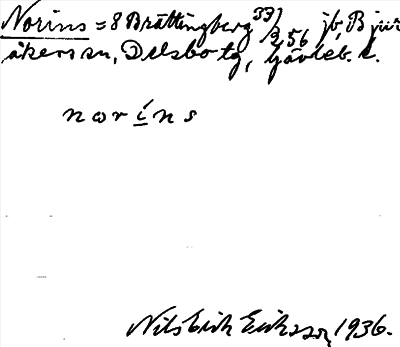 Norins = 8 Brättingberg 33/256 jb, Bjur
åkers sn, Delsbo tg, Gävleb. l.
norins
Nils Erik Eriksson, 1936.